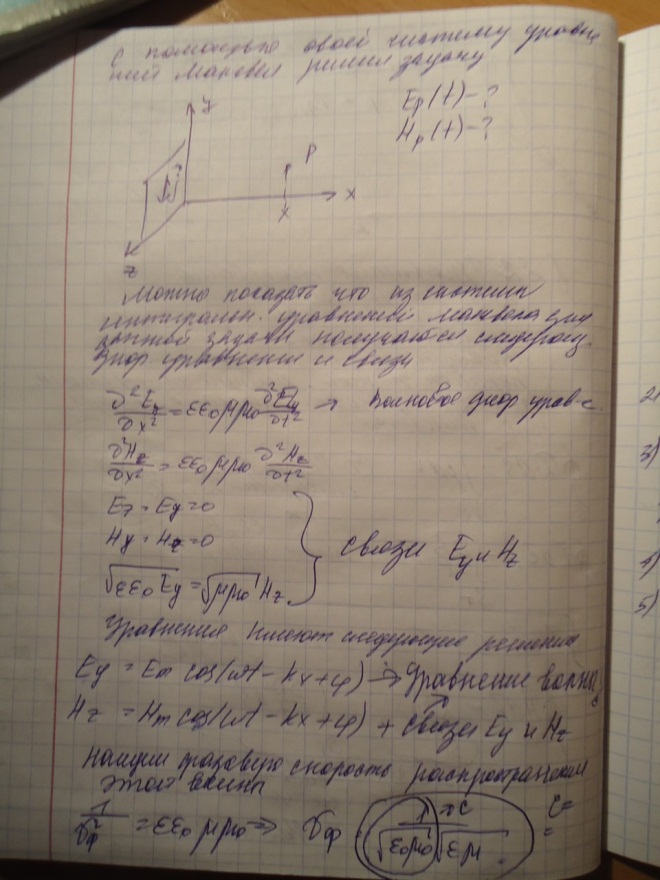 с помощью своей систему уравне
ний Максвел решил задачу
Ep(t) - ?
Hp(t) - ?
y
P
j
x
x
z
Можно показать что из системы
интегральн. уравнений Максвела для
данной задачи получается следующ.
диф уравнение и связи
∂²Ey/∂x² = εε₀μμ₀ ∂²Ey/∂t² → Волновое диф урав-е.
∂²Hz/∂x² = εε₀μμ₀ ∂²Hz/∂t²
Ez = Ey = 0
Hy = Hz = 0
связи Ey и Hz
√εε₀ Ey = √μμ₀ Hz
Уравнения имеют следующие решения
Ey = Em cos(ωt - kx + φ) → Уравнение волны
Hz = Hm cos(ωt - kx + φ) + связи Ey и Hz
Найдём фазовую скорость распространения
этой волны
1/Vф² = εε₀μμ₀ => Vф 1/√ε₀μ₀ √εμ
= c
c =
=
2
3)
4)
5)